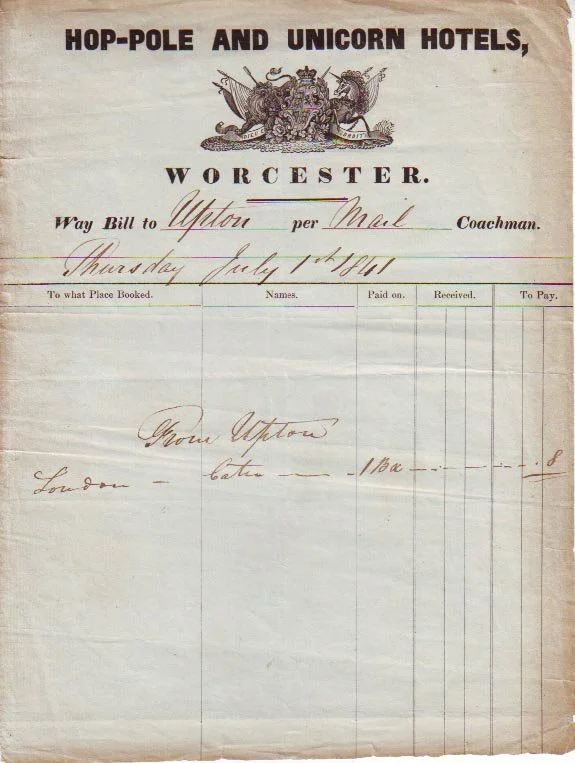 HOP-POLE AND UNICORN HOTELS,
WORCESTER.
Way Bill to Upton per Mail Coachman.
Thursday July 1st 1841
To what Place Booked. Names. Paid on. Received. To Pay.
From Upton
London - 1 Box 8